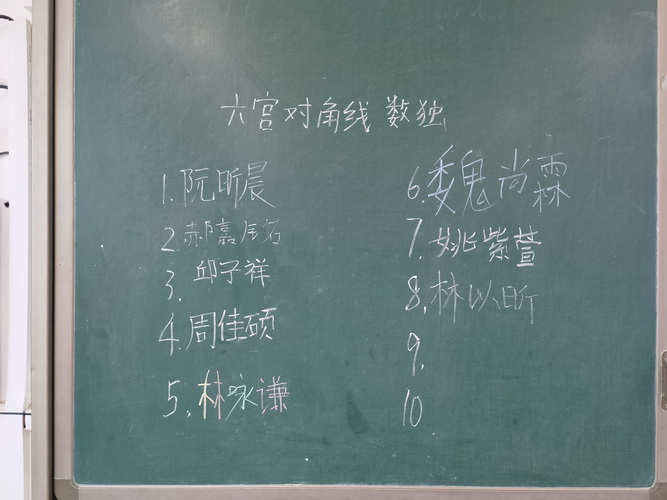 六宫对角线数独
1.阮昕晨
2.郝嘉
3.邱子祥
4.周佳硕
5、林咏谦
6.魏尚霖
7.姚紫萱
8.林以昕
9.
10